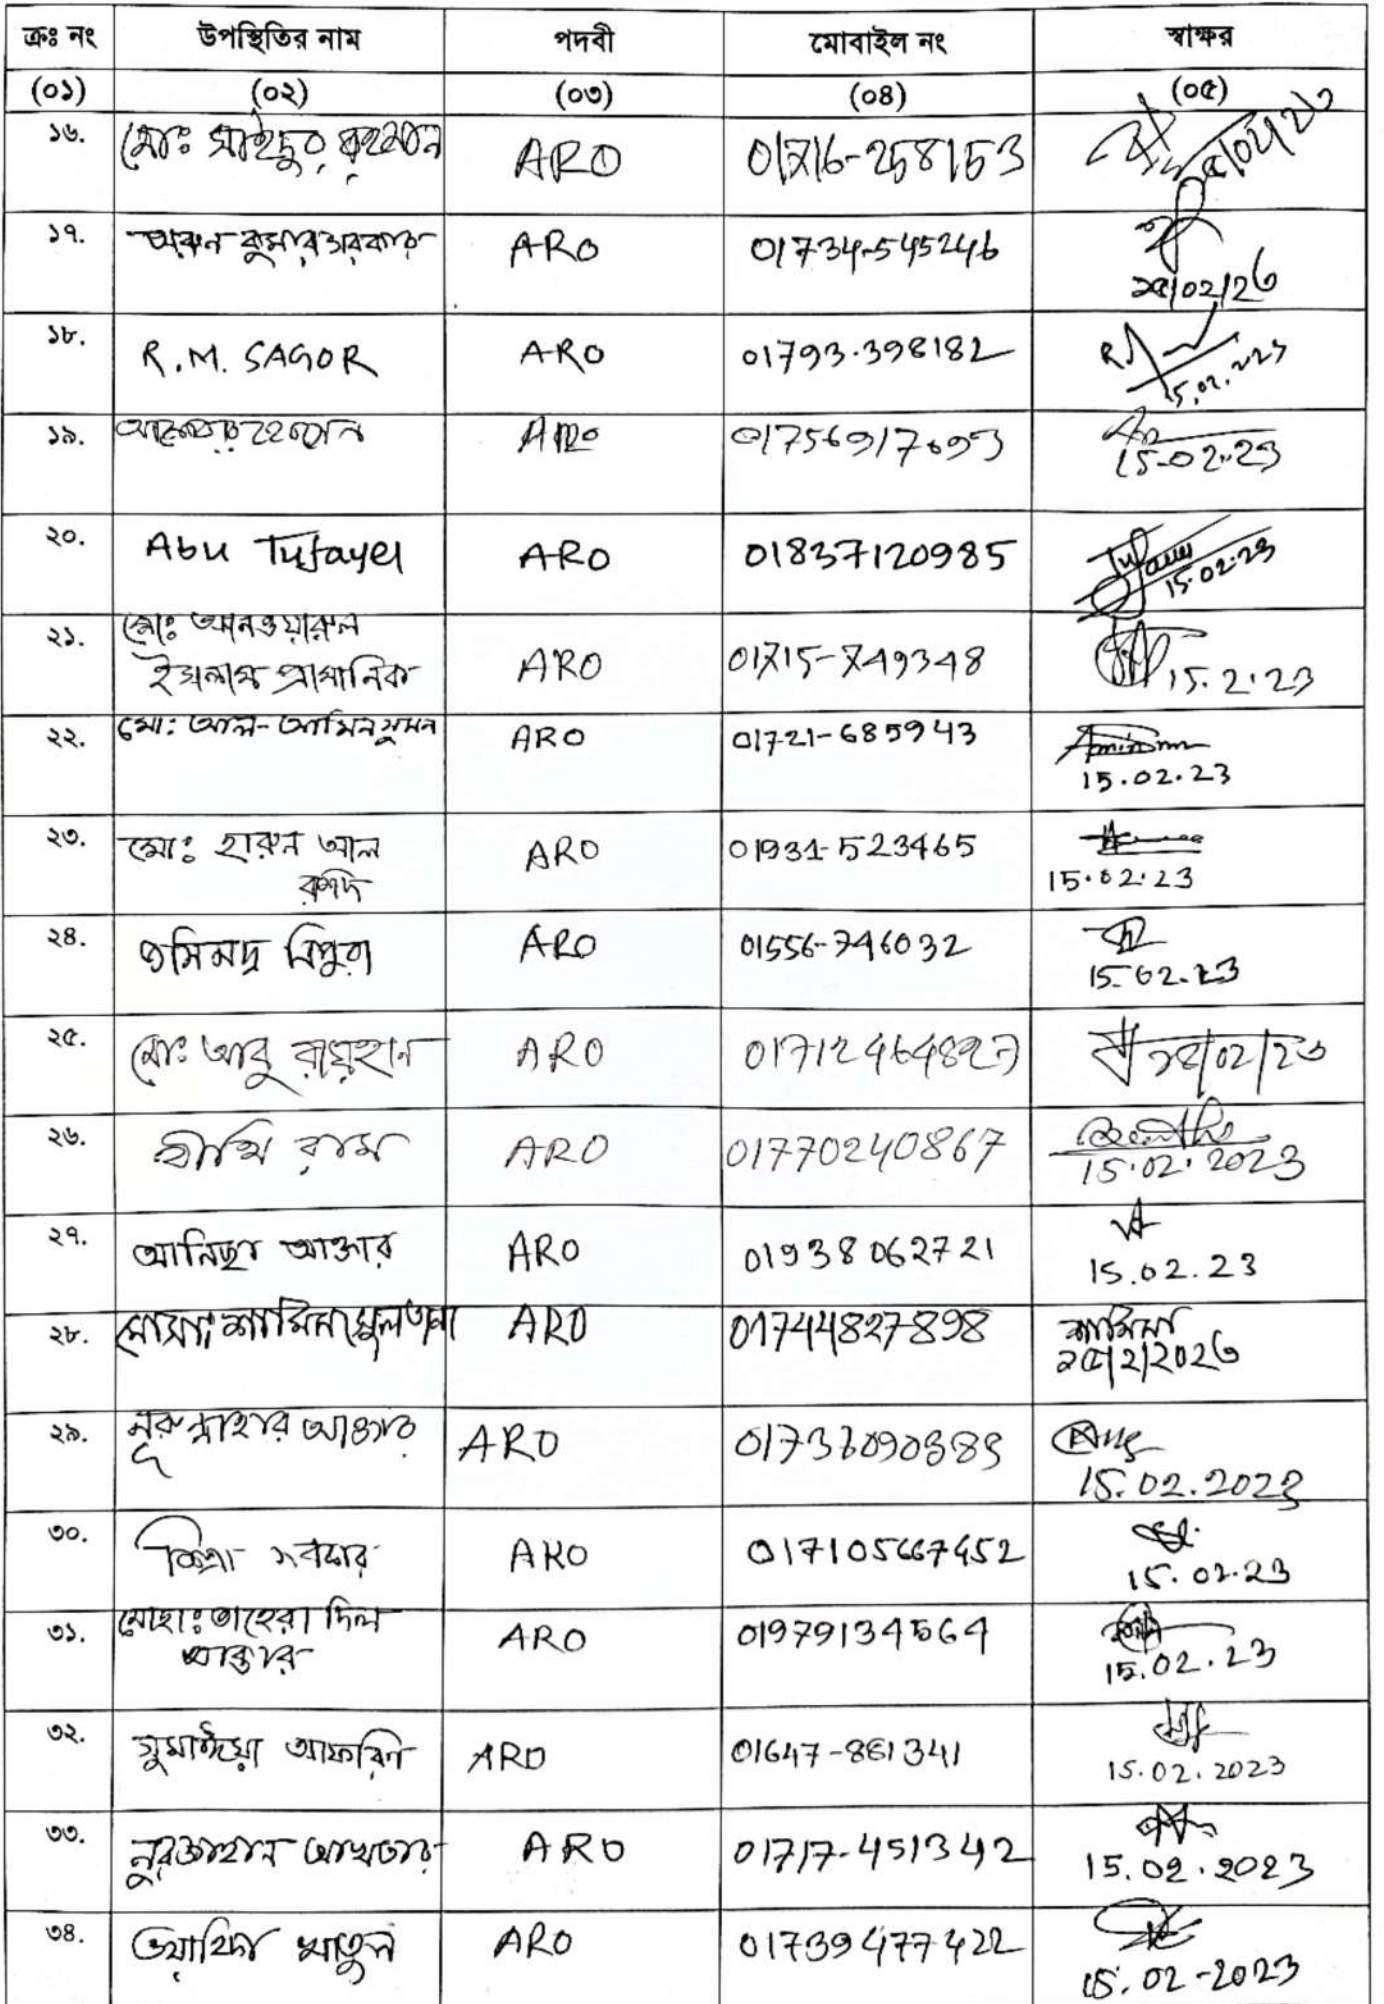 ক্রঃ নং উপস্থিতির নাম পদবী মোবাইল নং স্বাক্ষর
(০১) (০২) (০৩) (০৪) (০৫)
১৬. মোঃ সাইদুর রহমান ARO 01716-258153
১৭. অরুন কুমার সরকার ARO 01734-545246
১৫/02/২৩
১৮. R.M. SAGOR ARO 01793.398182
15.02.23
১৯. ARO 15-02-23
২০. Abu Tufayel ARO 01837120985 Tufayel
15.02.23
২১. মোঃ আনওয়ারুল
ইসলাম প্রামানিক ARO 01715-749348 15.2.23
২২. মো: আল-আমিন সুমন ARO 01721-685943
15.02.23
২৩. মোঃ হারুন আল
রশিদ ARO 01931-523465
15.02.23
২৪. ত্রিপুরা ARO 01556-746032
15.02.23
২৫. মোঃ আবু রায়হান ARO 01712464827 ১৫/০2/২৩
২৬. রাম ARO 01770240867
15.02.2023
২৭. আনিছা আক্তার ARO 01938062721
15.02.23
২৮. মোসাঃ শামিমা সুলতানা ARO 01744827898 শামিমা
১৫/2/২০২৩
২৯. নূরুন্নাহার আক্তার ARO
15.02.2023
৩০. সরকার ARO
15.02.23
৩১. মোছাঃ তাহেরা দিল
আক্তার ARO 01979134564
15.02.23
৩২. সুমাঈয়া আফরিণ ARO 01647-881341
15.02.2023
৩৩. নুরজাহান আখতার ARO 01717-451342
15.02.2023
৩৪. খাতুন ARO 01739477422
15.02-2023